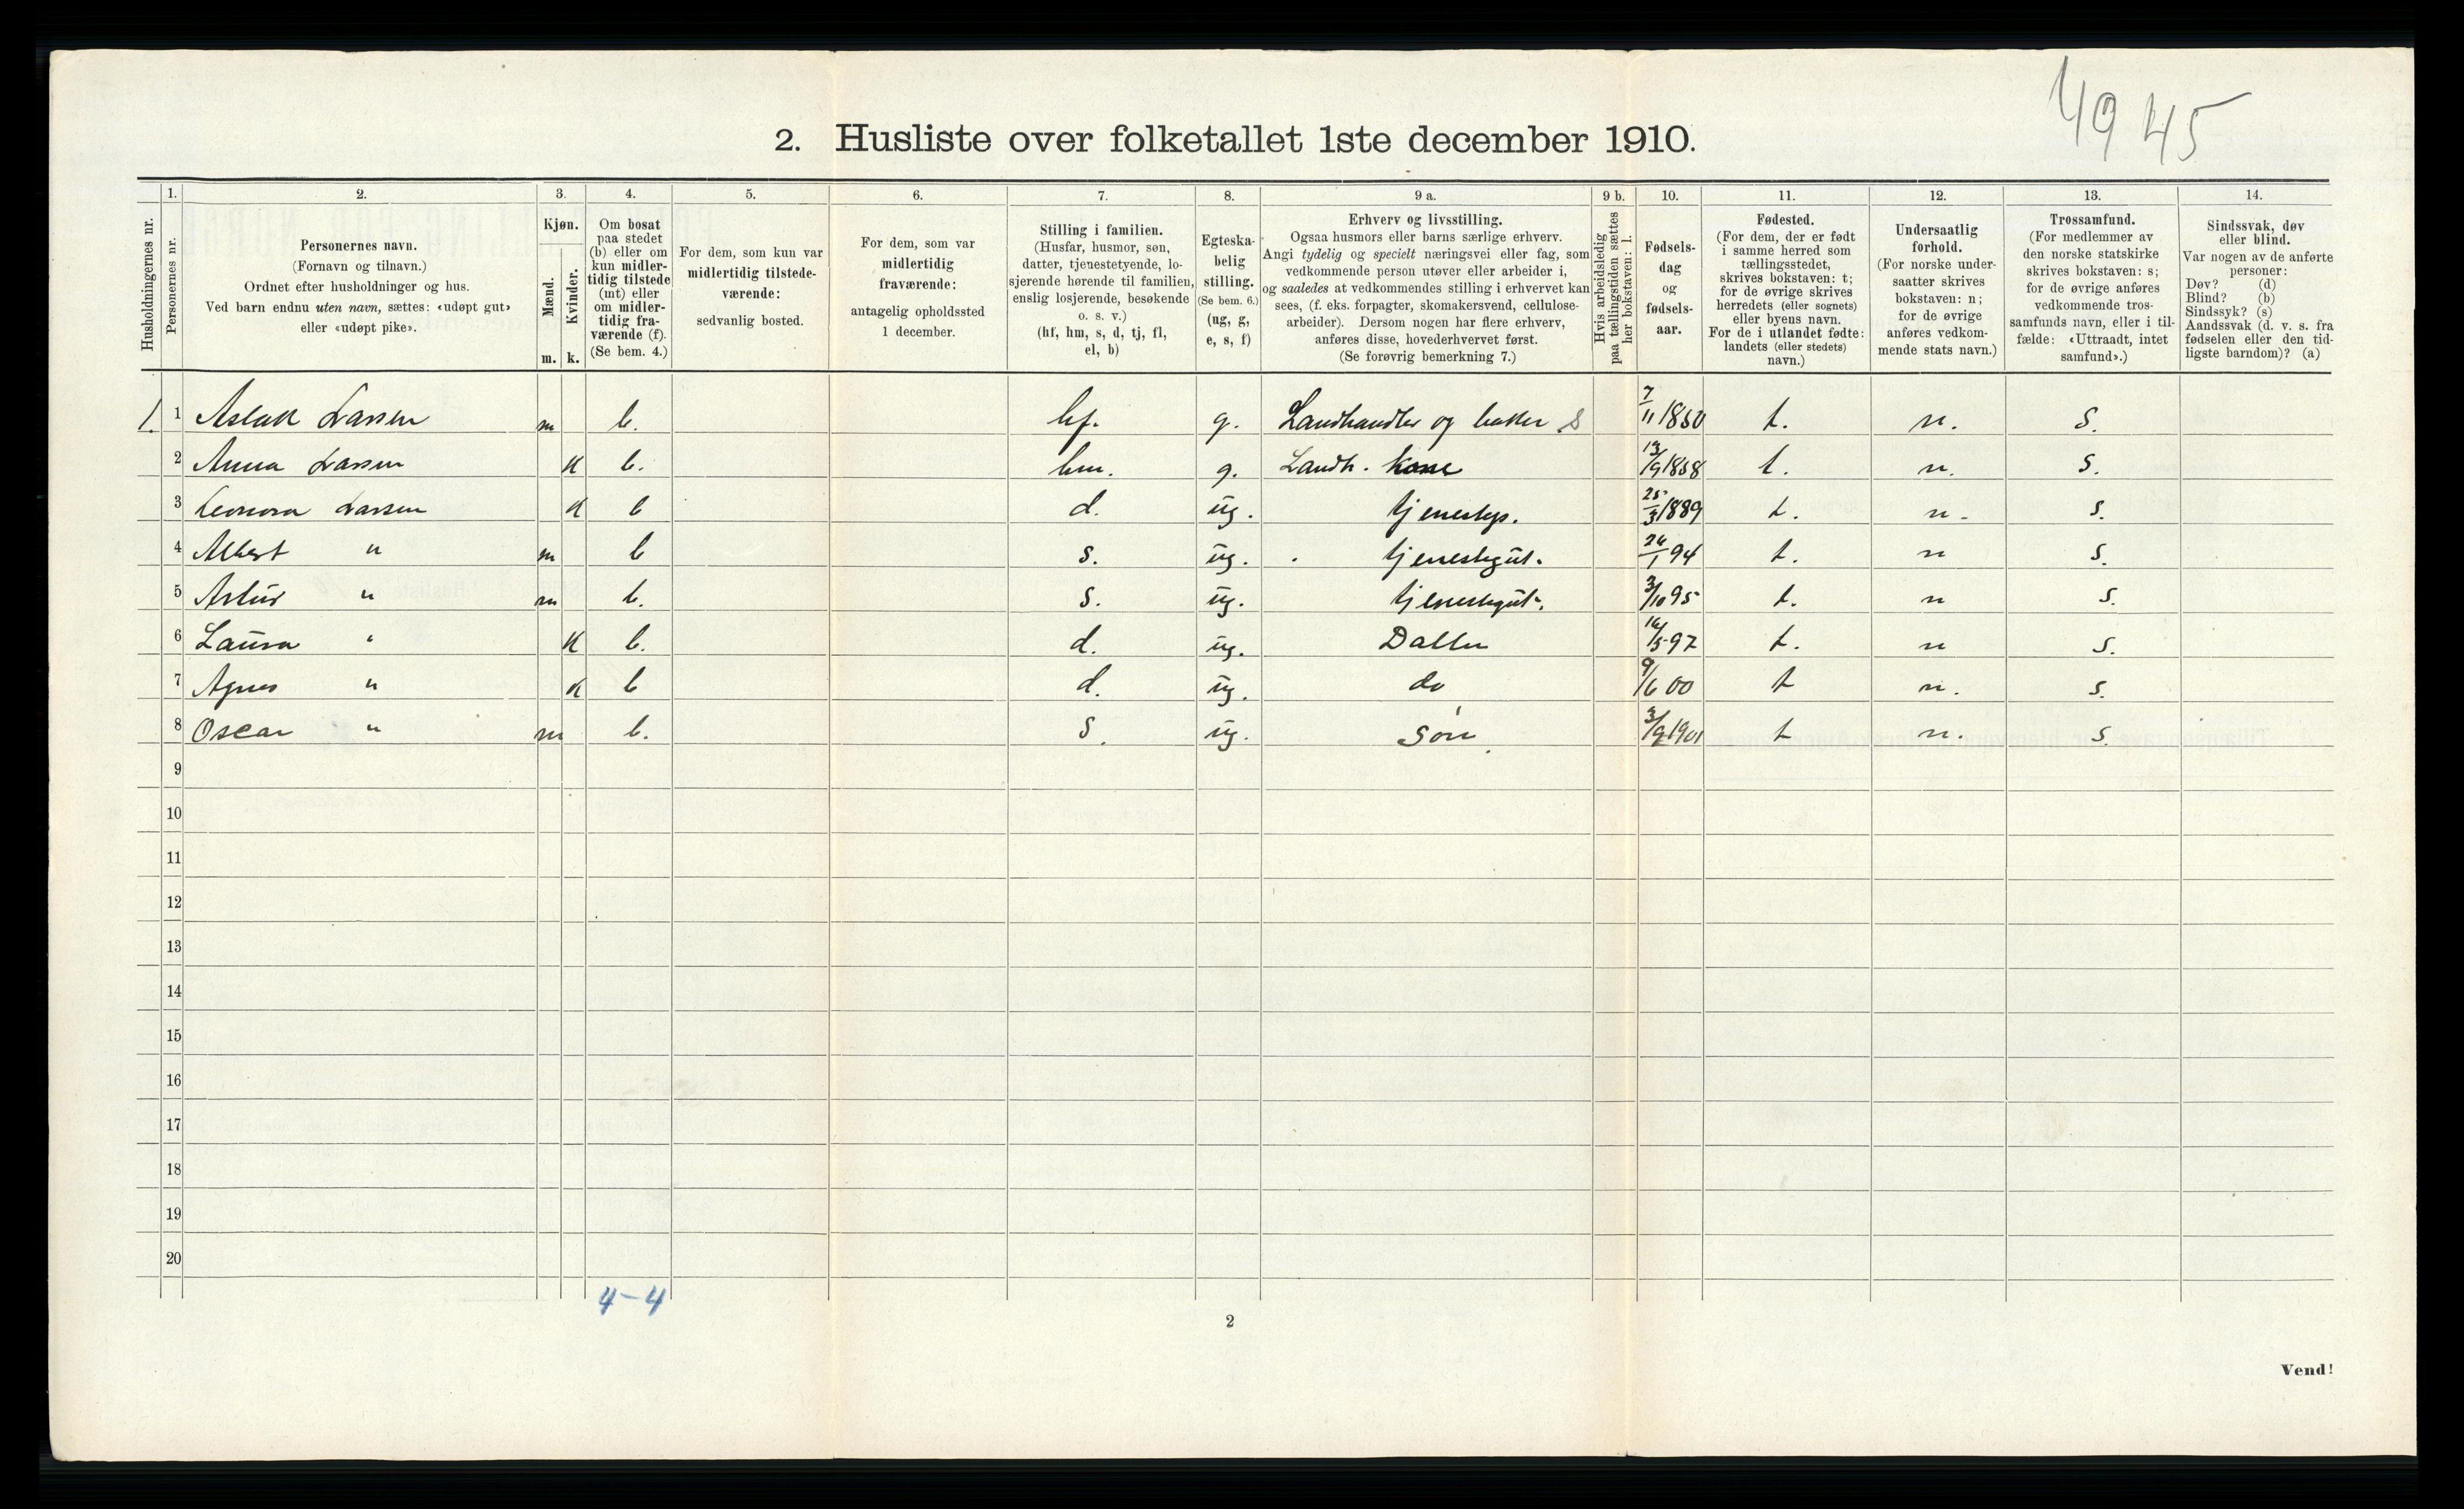 4945
2. Husliste over folketallet 1ste december 1910.
Husholdningernes nr.
1. Personernes nr.
2. Personernes navn.
(Fornavn og tilnavn.)
Ordnet efter husholdninger og hus.
Ved barn endnu uten navn, sættes: «udøpt gut»
eller «udøpt pike».
3. Kjøn.
Mænd. m.
Kvinder. k.
4. Om bosat
paa stedet
(b) eller om
kun midler-
tidig tilstede
(mt) eller
om midler-
tidig fra-
værende (f).
(Se bem. 4.)
5. For dem, som kun var
midlertidig tilstede-
værende:
sedvanlig bosted.
6. For dem, som var
midlertidig
fraværende:
antagelig opholdssted
1 december.
7. Stilling i familien.
(Husfar, husmor, søn,
datter, tjenestetyende, lo-
sjerende hørende til familien,
enslig losjerende, besøkende
o. s. v.)
(hf, hm, s, d, tj, fl,
el, b)
8. Egteska-
belig
stilling.
(Se bem. 6.)
(ug, g,
e, s, f)
9 a. Erhverv og livsstilling.
Ogsaa husmors eller barns særlige erhverv.
Angi tydelig og specielt næringsvei eller fag, som
vedkommende person utøver eller arbeider i,
og saaledes at vedkommendes stilling i erhvervet kan
sees, (f. eks. forpagter, skomakersvend, cellulose-
arbeider). Dersom nogen har flere erhverv,
anføres disse, hovederhvervet først.
(Se forøvrig bemerkning 7.)
9 b. Hvis arbeidsledig
paa tællingstiden sættes
her bokstaven: l.
10. Fødsels-
dag
og
fødsels-
aar.
11. Fødested.
(For dem, der er født
i samme herred som
tællingsstedet,
skrives bokstaven: t;
for de øvrige skrives
herredets (eller sognets)
eller byens navn.
For de i utlandet fødte:
landets (eller stedets)
navn.)
12. Undersaatlig
forhold.
(For norske under-
saatter skrives
bokstaven: n;
for de øvrige
anføres vedkom-
mende stats navn.)
13. Trossamfund.
(For medlemmer av
den norske statskirke
skrives bokstaven: s;
for de øvrige anføres
vedkommende tros-
samfunds navn, eller i til-
fælde: «Uttraadt, intet
samfund».)
14. Sindssvak, døv
eller blind.
Var nogen av de anførte
personer:
Døv? (d)
Blind? (b)
Sindssyk? (s)
Aandssvak (d. v. s. fra
fødselen eller den tid-
ligste barndom)? (a)
1. 1 Aslak Larsen m b. hf. g. Landhandler og S 7/11 18 t. n. S.
2 Anna Larsen K b. hm. g. Landh. Kone 13/9 18 8 t. n. S.
3 Leonora Larsen K b d. ug. tjenestep. 25/3 1889 t. n. S.
4 Albert " m b s. ug. tjenestegut. /1 94 t. n S.
5 Artur " m b. s. ug. tjenestegut. 3/10 95 t. n S.
6 Laura " K b. d. ug. Datter /5 97 t. n S.
7 Agnes " K b d. ug. do 9/6 00 t n. S.
8 Oscar " m b. s. ug. Søn 3/ 1901 t n. S.
9
10
11
12
13
14
15
16
17
18
19
20
4-4
2
Vend!